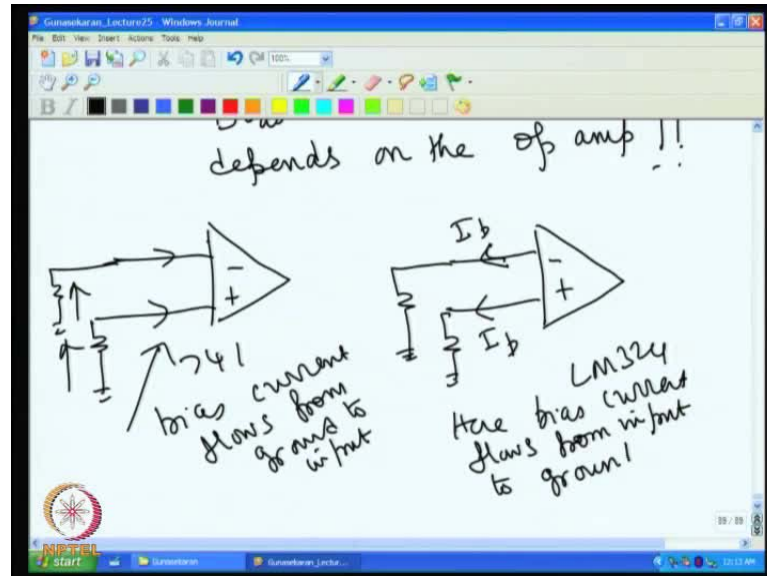 Gunasekaran_Lecture25 - Windows Journal
File Edit View Insert Actions Tools Help
100%
B I
depends on the op amp !!
- 
+
741
bias current
flows from
ground to
input
Ib
-
+
Ib
LM324
Here bias current
flows from input
to ground
89 / 89
NPTEL
start
Gunasekaran
Gunasekaran_Lectur...
12:12 AM